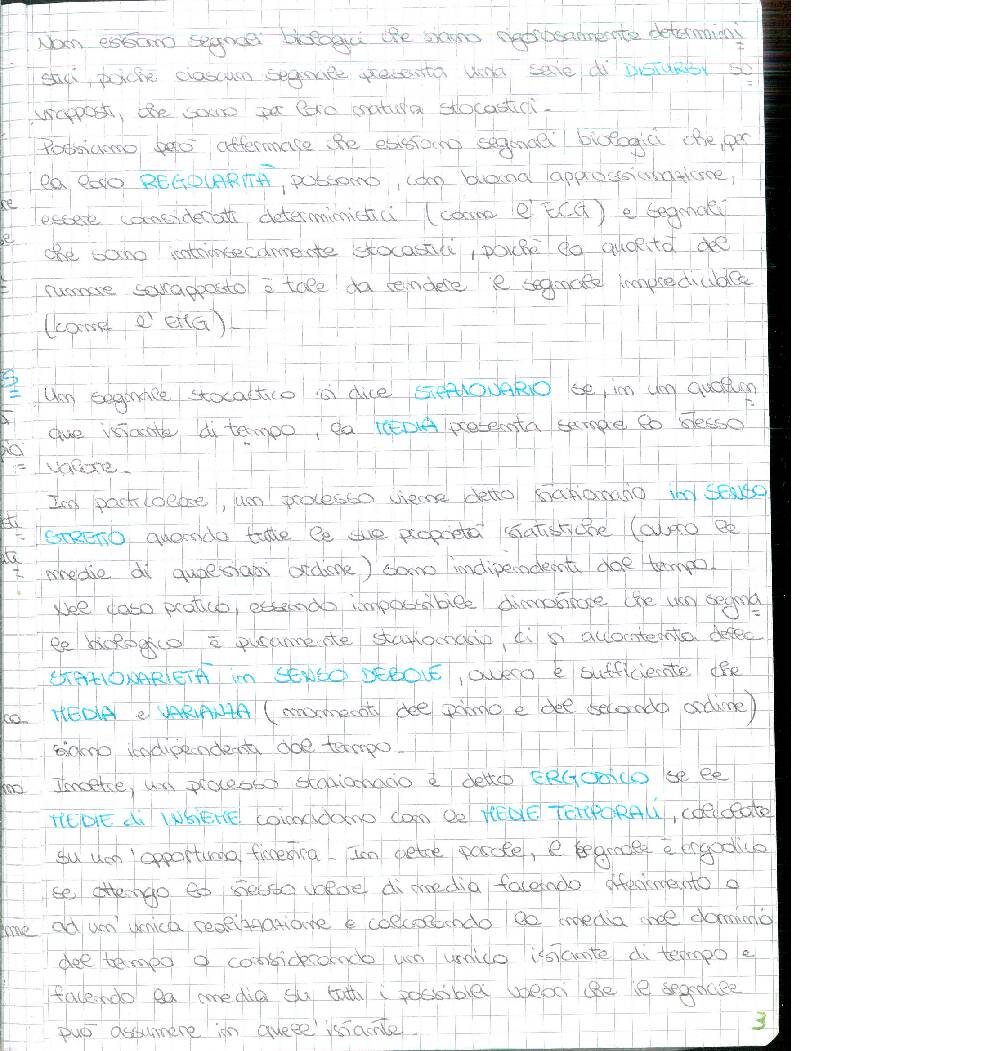 Non esistono segnali biologici che siano rigorosamente determini
stici poiché ciascun segnale presenta una serie di DISTURBI so
vrapposti, che sono per loro natura stocastici.
Possiamo però affermare che esistono segnali biologici che, per
la loro REGOLARITÀ, possono, con buona approssimazione,
essere considerati deterministici (come l'ECG) e segnali
che sono intrinsecamente stocastici, poiché la qualità del
rumore sovrapposto è tale da rendere il segnale impredicibile
(come l'EMG).
Un segnale stocastico si dice STAZIONARIO se, in un qualun
que istante di tempo, la MEDIA presenta sempre lo stesso
valore.
In particolare, un processo viene detto stazionario in SENSO
STRETTO quando tutte le sue proprietà statistiche (ovvero le
medie di qualsiasi ordine) sono indipendenti dal tempo.
Nel caso pratico, essendo impossibile dimostrare che un segna
le biologico è puramente stazionario, ci si accontenta della
STAZIONARIETÀ in SENSO DEBOLE, ovvero è sufficiente che
MEDIA e VARIANZA (momenti del primo e del secondo ordine)
siano indipendenti dal tempo.
Inoltre, un processo stazionario è detto ERGODICO se le
MEDIE di INSIEME coincidono con le MEDIE TEMPORALI, calcolate
su un'opportuna finestra. In altre parole, il segnale è ergodico
se ottengo lo stesso valore di media facendo riferimento o
ad un'unica realizzazione e calcolando la media nel dominio
del tempo o considerando un unico istante di tempo e
facendo la media su tutti i possibili valori che il segnale
può assumere in quell'istante.
3